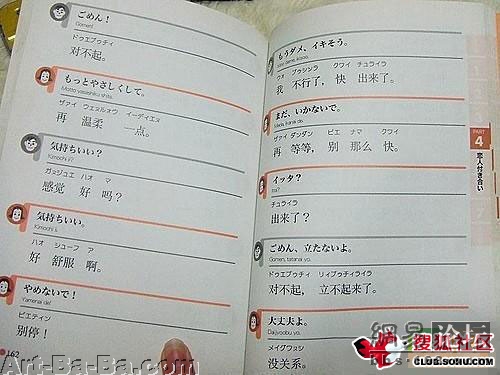 ごめん！
Gomen!
ドゥエブゥチィ
对不起。
もっとやさしくして。
Motto yasashiku shite.
ザァイ ウェェルォウ イーディエェヌ
再 温柔 一点。
気持ちいい？
Kimochi ii?
ガァジュエ ハオ マ
感觉 好 吗？
気持ちいい。
Kimochi ii.
ハオ シューフ ア
好 舒服 啊。
やめないで！
Yamenai de!
ビエティン
别停！
162
もうダメ、イキそう。
Mou dame, ikisou.
ウオ ブゥシンラ クワイ チュライラ
我 不行了，快 出来了。
まだ、いかないで。
Mada, ikanai de.
ザァイ ダンダン ビエ ナマ クワイ
再 等等，别 那么 快。
イッタ？
Itta?
チュライラ
出来了？
ごめん、立たないよ。
Gomen, tatanai yo.
ドゥエブゥチィ リィブゥチィライラ
对不起，立不起来了。
大丈夫よ。
Daijoubu yo.
メイグワンシ
没关系。
PART
4
恋人付き合い
Art-Ba-Ba.com
搜狐社区
CLUB.SOHU.COM